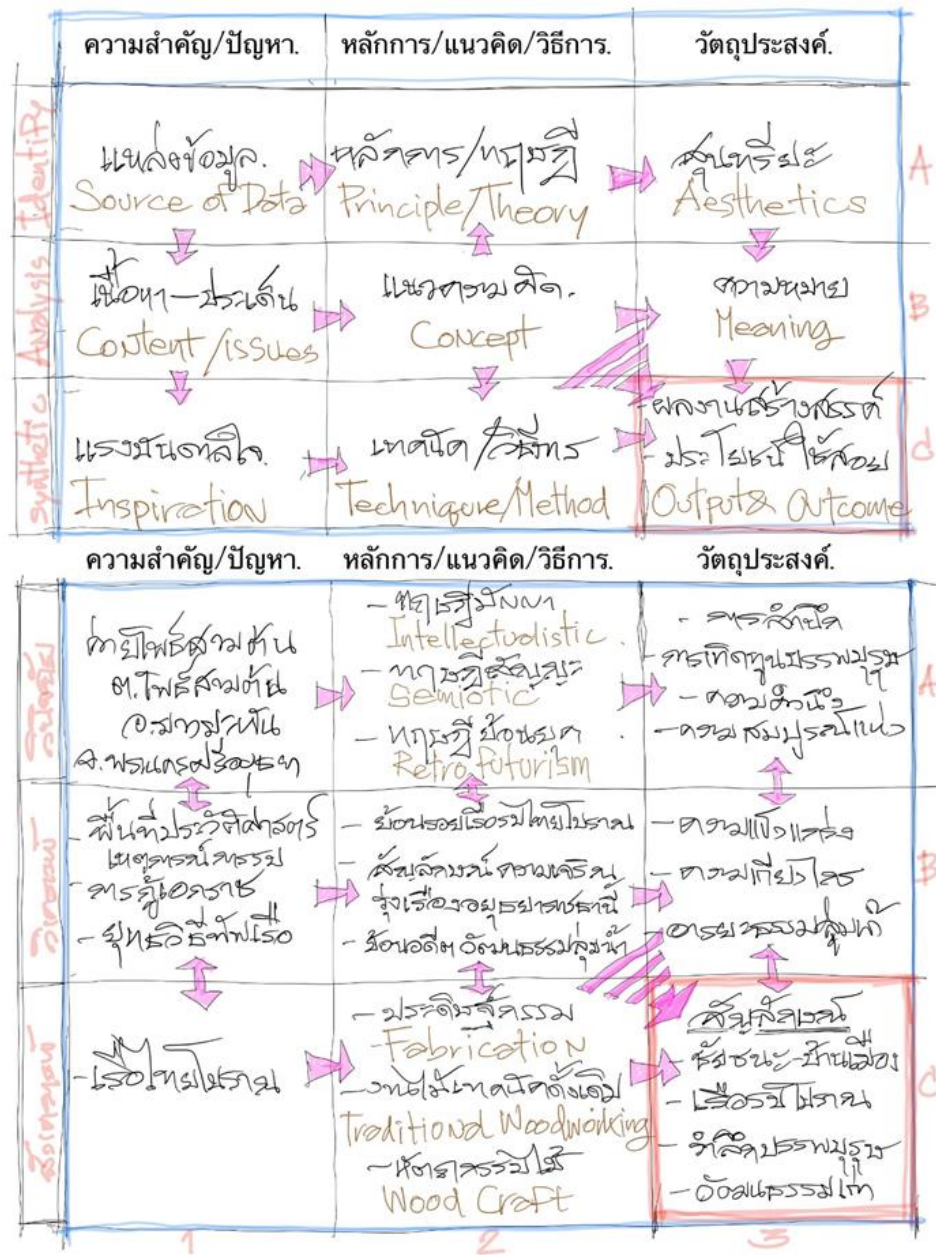 ความสำคัญ/ปัญหา. หลักการ/แนวคิด/วิธีการ. วัตถุประสงค์.
Identify
แหล่งข้อมูล. หลักการ/ทฤษฎี สุนทรียะ A
Source of Data Principle/Theory Aesthetics
Analysis
เนื้อหา-ประเด็น แนวความคิด. ความหมาย B
Content/issues Concept Meaning
Synthetic
- ผลงานสร้างสรรค์
แรงบันดาลใจ เทคนิค/วิธีการ - ประโยชน์ใช้สอย C
Inspiration Technique/Method Output & Outcome
ความสำคัญ/ปัญหา. หลักการ/แนวคิด/วิธีการ. วัตถุประสงค์.
ค่ายโพธิ์สามต้น
ต.โพธิ์สามต้น
อ.บางปะหัน
จ.พระนครศรีอยุธยา
- ทฤษฎีปัญญา
Intellectualistic.
- ทฤษฎีสัญญะ
Semiotic
- ทฤษฎีย้อนยุค
Retro futurism
- การรำลึก
- การเทิดทูนบรรพบุรุษ
- ความคำนึง
- ความสมบูรณ์แห่ง
A
วิเคราะห์
- พื้นที่ประวัติศาสตร์
เหตุการณ์การรบ
- การกู้เอกราช
- ยุทธวิธีทัพเรือ
- ย้อนรอยเรือรบไทยโบราณ
- สัญลักษณ์ความเจริญ
รุ่งเรืองอยุธยาราชธานี
- ย้อนอดีตวัฒนธรรมลุ่มน้ำ
- ความแข็งแกร่ง
- ความเกรียงไกร
- อารยธรรมลุ่มน้ำ
B
สังเคราะห์
- เรือไทยโบราณ
- ประดิษฐ์กรรม
- Fabrication
- งานไม้เทคนิคดั้งเดิม
Traditional Woodworking
- หัตถกรรมไม้
Wood Craft
สัญลักษณ์
- ชัยชนะ-บ้านเมือง
- เรือรบโบราณ
- รำลึกบรรพบุรุษ
C
1 2 3